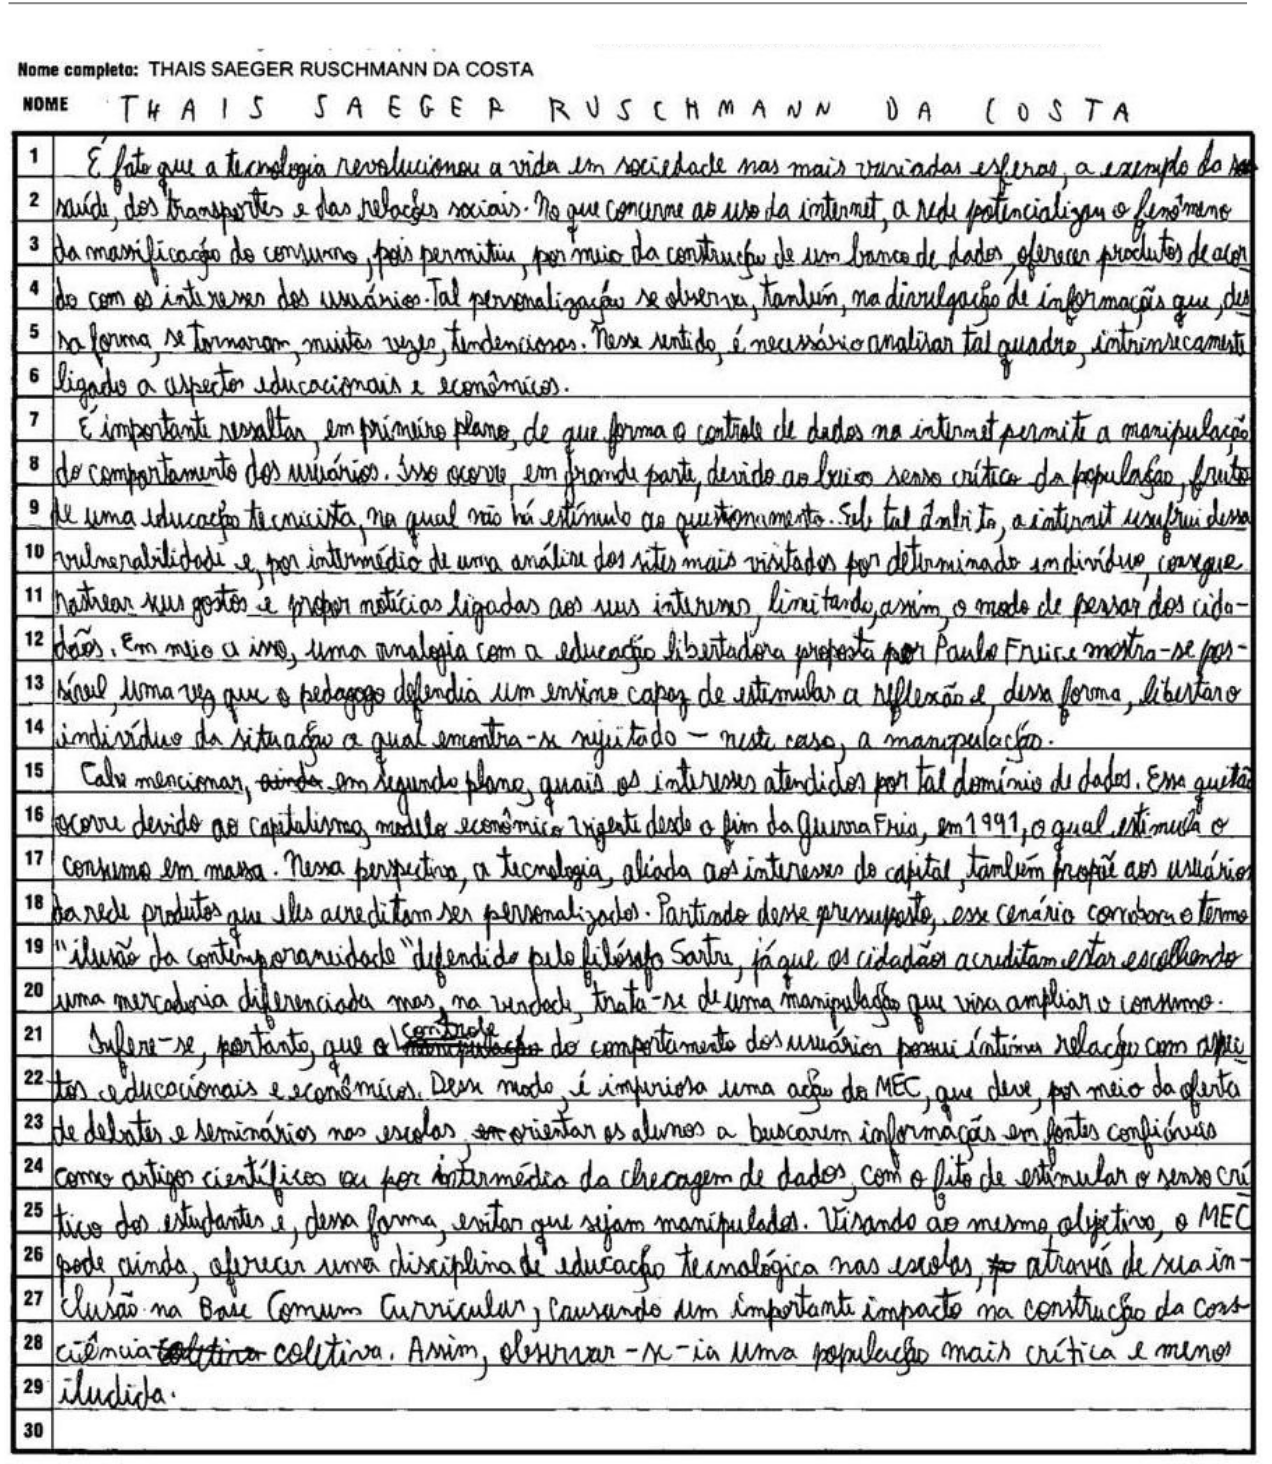 Nome completo: THAIS SAEGER RUSCHMANN DA COSTA
NOME THAIS SAEGER RUSCHMANN DA COSTA
1 É fato que a tecnologia revolucionou a vida em sociedade nas mais variadas esferas, a exemplo da
2 saúde, dos transportes e das relações sociais. No que concerne ao uso da internet, a rede potencializou o fenômeno
3 da massificação do consumo, pois permitiu, por meio da construção de um banco de dados, oferecer produtos de acor
4 do com os interesses dos usuários. Tal personalização se observa, também, na divulgação de informações que, des
5 sa forma, se tornaram, muitas vezes, tendenciosas. Nesse sentido, é necessário analisar tal quadro, intrinsecamente
6 ligado a aspectos educacionais e econômicos.
7 É importante ressaltar, em primeiro plano, de que forma o controle de dados na internet permite a manipulação
8 do comportamento dos usuários. Isso ocorre, em grande parte, devido ao baixo senso crítico da população, fruto
9 de uma educação tecnicista, na qual não há estímulo ao questionamento. Sob tal âmbito, a internet usufrui dessa
10 vulnerabilidade e, por intermédio de uma análise dos sites mais visitados por determinado indivíduo, consegue
11 rastrear seus gostos e propor notícias ligadas aos seus interesses, limitando, assim, o modo de pensar dos cida-
12 dãos. Em meio a isso, uma analogia com a educação libertadora proposta por Paulo Freire mostra-se pos-
13 sível, uma vez que o pedagogo defendia um ensino capaz de estimular a reflexão e, dessa forma, libertar o
14 indivíduo da situação a qual encontra-se sujeitado – neste caso, a manipulação.
15 Cabe mencionar, ainda em segundo plano, quais os interesses atendidos por tal domínio de dados. Essa questão
16 ocorre devido ao capitalismo, modelo econômico vigente desde o fim da Guerra Fria, em 1991, o qual estimula o
17 consumo em massa. Nessa perspectiva, a tecnologia, aliada aos interesses do capital, também propõe aos usuários
18 da rede produtos que eles acreditam ser personalizados. Partindo desse pressuposto, esse cenário corrobora o termo
19 "ilusão da contemporaneidade" defendido pelo filósofo Sartre, já que os cidadãos acreditam estar escolhendo
20 uma mercadoria diferenciada mas, na verdade, trata-se de uma manipulação que visa ampliar o consumo.
21 Infere-se, portanto, que o controle manipulação do comportamento dos usuários possui íntima relação com aspec
22 tos educacionais e econômicos. Desse modo, é imperiosa uma ação do MEC, que deve, por meio da oferta
23 de debates e seminários nas escolas, orientar os alunos a buscarem informações em fontes confiáveis
24 como artigos científicos ou por intermédio da checagem de dados, com o fito de estimular o senso crí
25 tico dos estudantes e, dessa forma, evitar que sejam manipulados. Visando ao mesmo objetivo, o MEC
26 pode, ainda, oferecer uma disciplina de educação tecnológica nas escolas, através de sua in-
27 clusão na Base Comum Curricular, causando um importante impacto na construção da cons
28 ciência coletiva coletiva. Assim, observar-se-ia uma população mais crítica e menos
29 iludida.
30